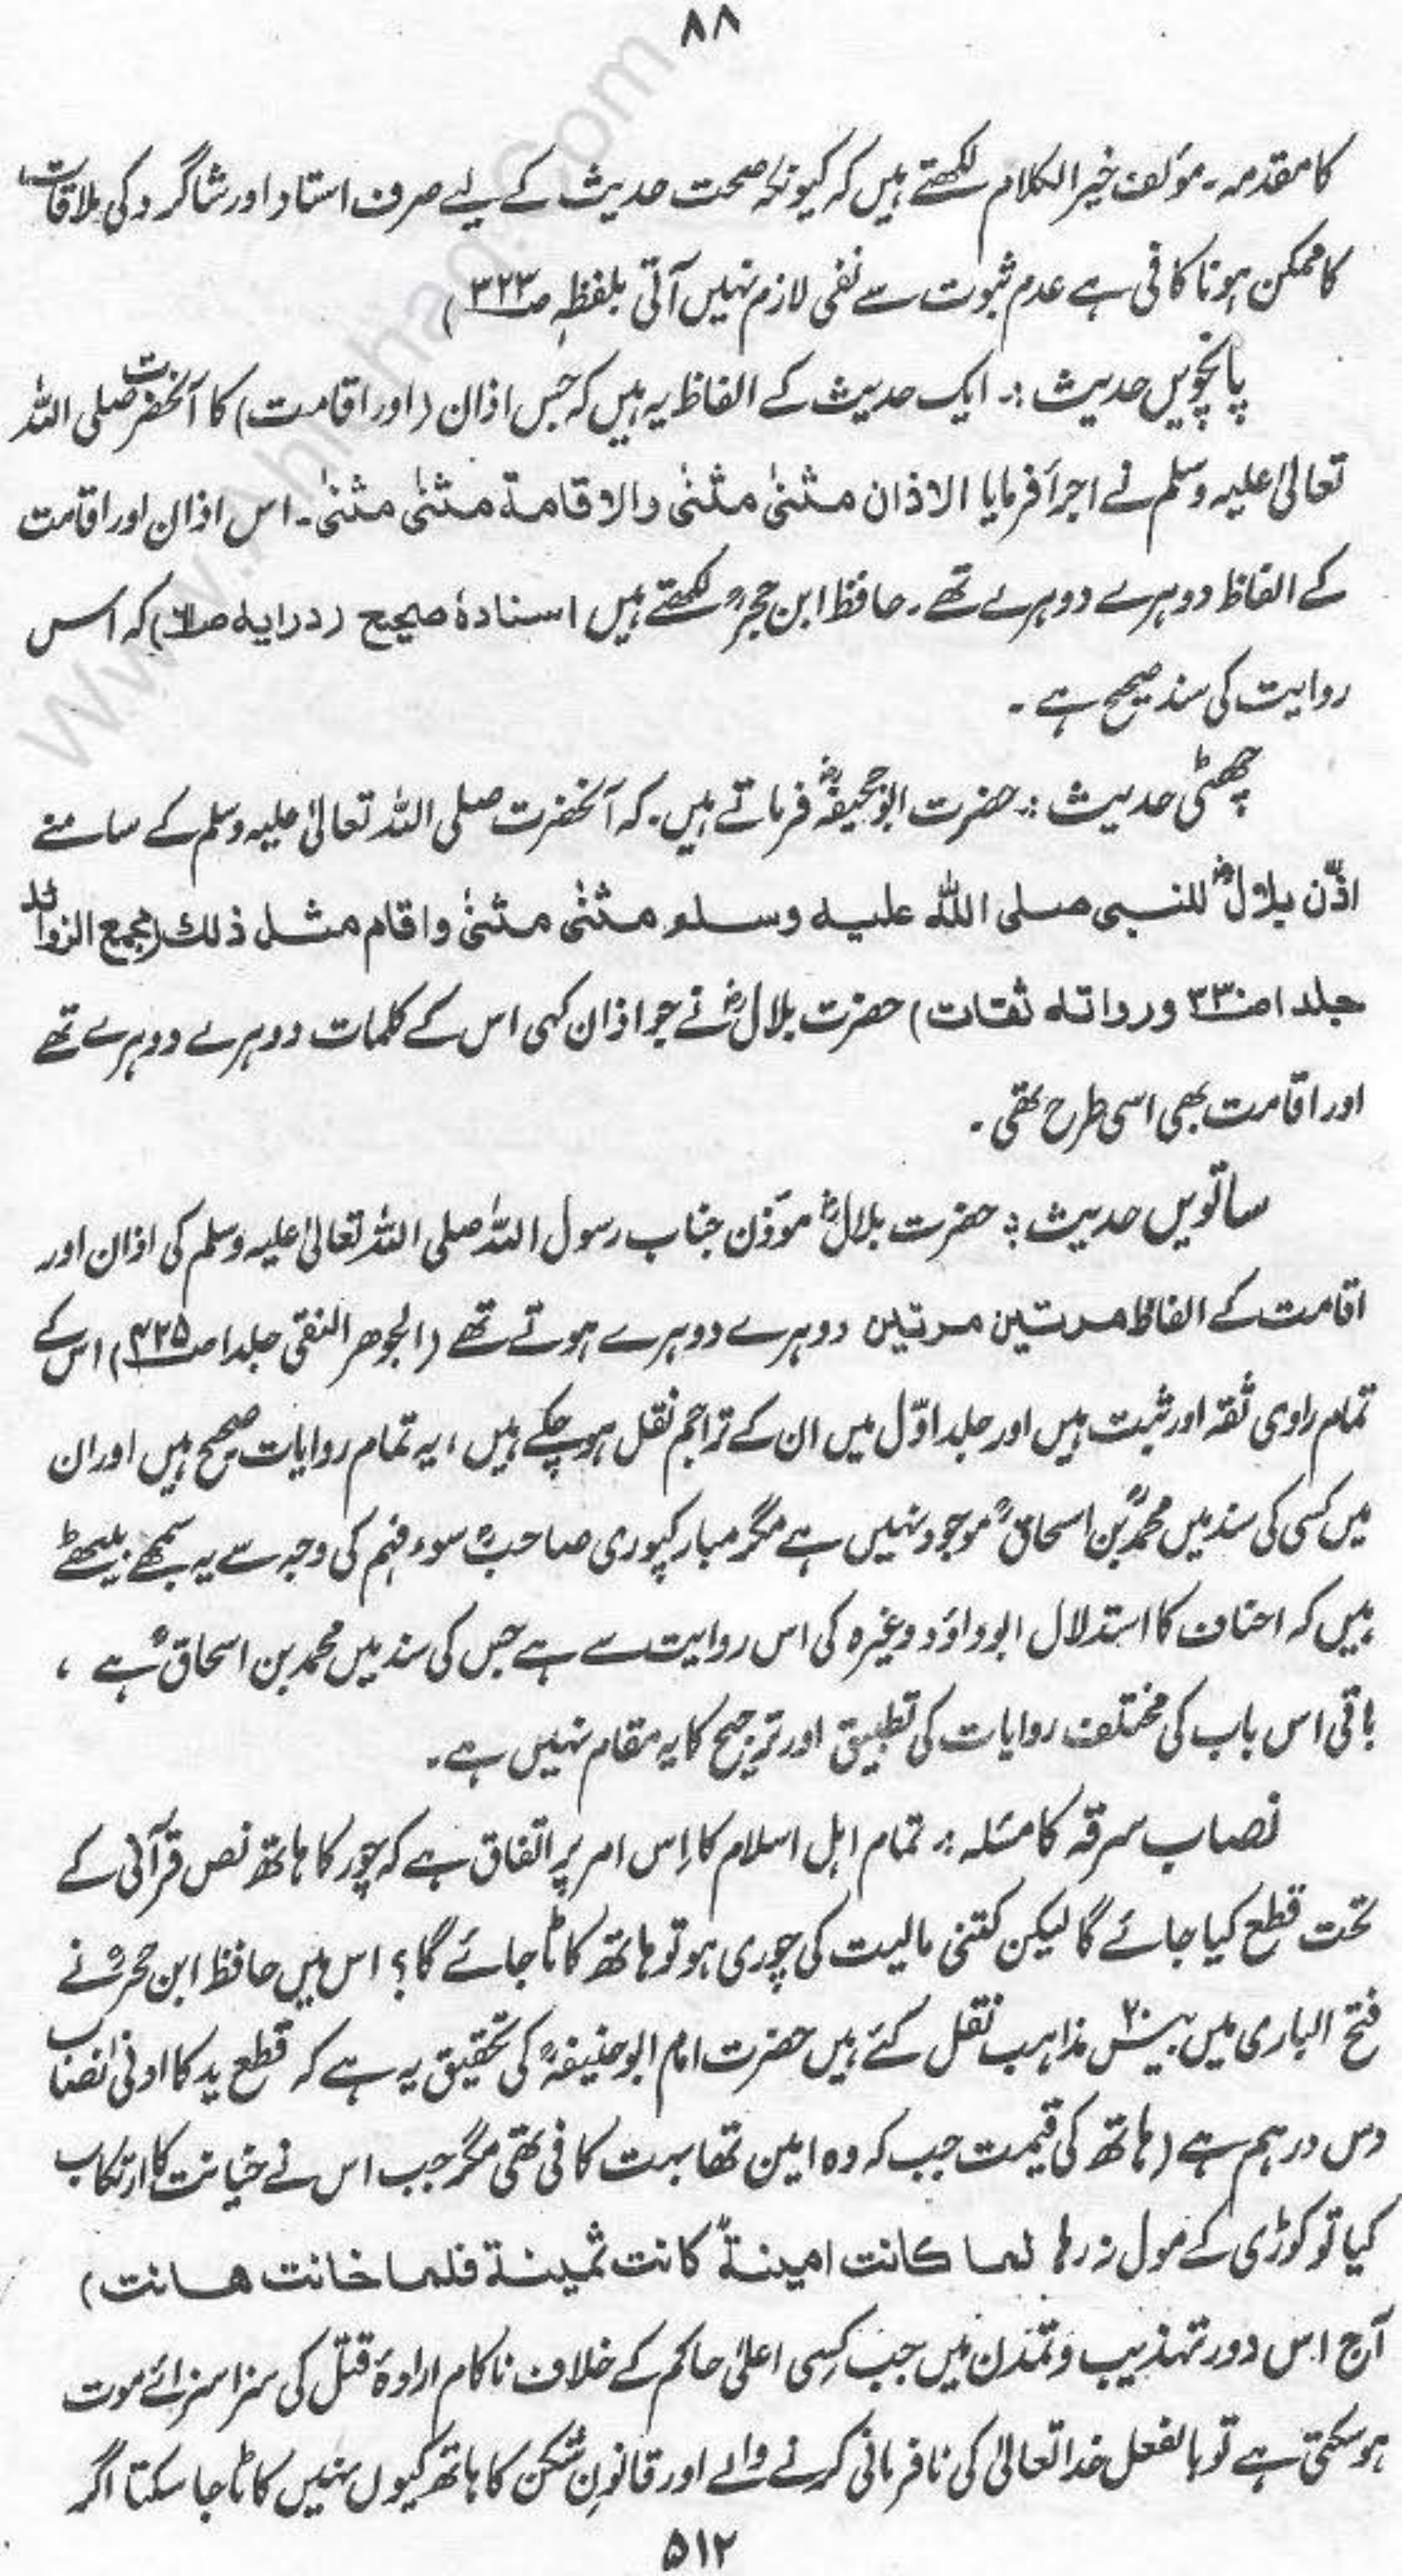 ۸۸
کا مقدمہ۔ مؤلف خیر الکلام لکھتے ہیں کہ کیونکہ صحت حدیث کے لیے صرف استاد اور شاگرد کی ملاقات
کا ممکن ہونا کافی ہے عدم ثبوت سے نفی لازم نہیں آتی بلفظہٖ صـ۳۲۳)
پانچویں حدیث :۔ ایک حدیث کے الفاظ یہ ہیں کہ جس اذان (اور اقامت) کا آنحضرت صلی اللہ
تعالیٰ علیہ وسلم نے اجرأ فرمایا الاذان مثنیٰ مثنیٰ والاقامة مثنیٰ مثنیٰ۔ اس اذان اور اقامت
کے الفاظ دوہرے دوہرے تھے۔ حافظ ابن حجرؒ لکھتے ہیں اسنادہٗ صحیح (درایہ صـ۶۱) کہ اس
روایت کی سند صحیح ہے۔
چھٹی حدیث :۔ حضرت ابوجحیفہؓ فرماتے ہیں۔ کہ آنحضرت صلی اللہ تعالیٰ علیہ وسلم کے سامنے
اذّن بلالؓ للنبی صلی اللہ علیہ وسلم مثنیٰ مثنیٰ واقام مثل ذلك (مجمع الزوائد
جلد ۱ صـ۳۳۰ ورواتہ ثقات) حضرت بلالؓ نے جو اذان کہی اس کے کلمات دوہرے دوہرے تھے
اور اقامت بھی اسی طرح تھی۔
ساتویں حدیث :۔ حضرت بلالؓ مؤذن جناب رسول اللہ صلی اللہ تعالیٰ علیہ وسلم کی اذان اور
اقامت کے الفاظ مرتین مرتین دوہرے دوہرے ہوتے تھے (الجوھر النقی جلد ۱ صـ۴۲۵) اس کے
تمام راوی ثقہ اور ثبت ہیں اور جلد اوّل میں ان کے تراجم نقل ہو چکے ہیں، یہ تمام روایات صحیح ہیں اور ان
میں کسی کی سند میں محمدؒ بن اسحاقؒ موجود نہیں ہے مگر مبارکپوری صاحبؒ سوء فہم کی وجہ سے یہ سمجھے بیٹھے
ہیں کہ احناف کا استدلال ابوداؤد وغیرہ کی اس روایت سے ہے جس کی سند میں محمد بن اسحاقؒ ہے ،
باقی اس باب کی مختلف روایات کی تطبیق اور ترجیح کا یہ مقام نہیں ہے۔
نصاب سرقہ کا مسئلہ :۔ تمام اہل اسلام کا اِس امر پر اتفاق ہے کہ چور کا ہاتھ نص قرآنی کے
تحت قطع کیا جائے گا لیکن کتنی مالیت کی چوری ہو تو ہاتھ کاٹا جائے گا؟ اس میں حافظ ابن حجرؒ نے
فتح الباری میں بیس۲۰ مذاہب نقل کئے ہیں حضرت امام ابوحنیفہؒ کی تحقیق یہ ہے کہ قطع ید کا ادنیٰ نصاب
دس درہم ہے (ہاتھ کی قیمت جب کہ وہ امین تھا بہت کافی تھی مگر جب اس نے خیانت کا ارتکاب
کیا تو کوڑی کے مول نہ رہا لما کانت امینةً کانت ثمینة فلما خانت ھانت)
آج اس دور تہذیب و تمدن میں جب کِسی اعلیٰ حاکم کے خلاف ناکام ارادۂ قتل کی سزا سزائے موت
ہو سکتی ہے تو بالفعل خدا تعالیٰ کی نافرمانی کرنے والے اور قانونِ شکن کا ہاتھ کیوں نہیں کاٹا جا سکتا اگر
۵۱۲